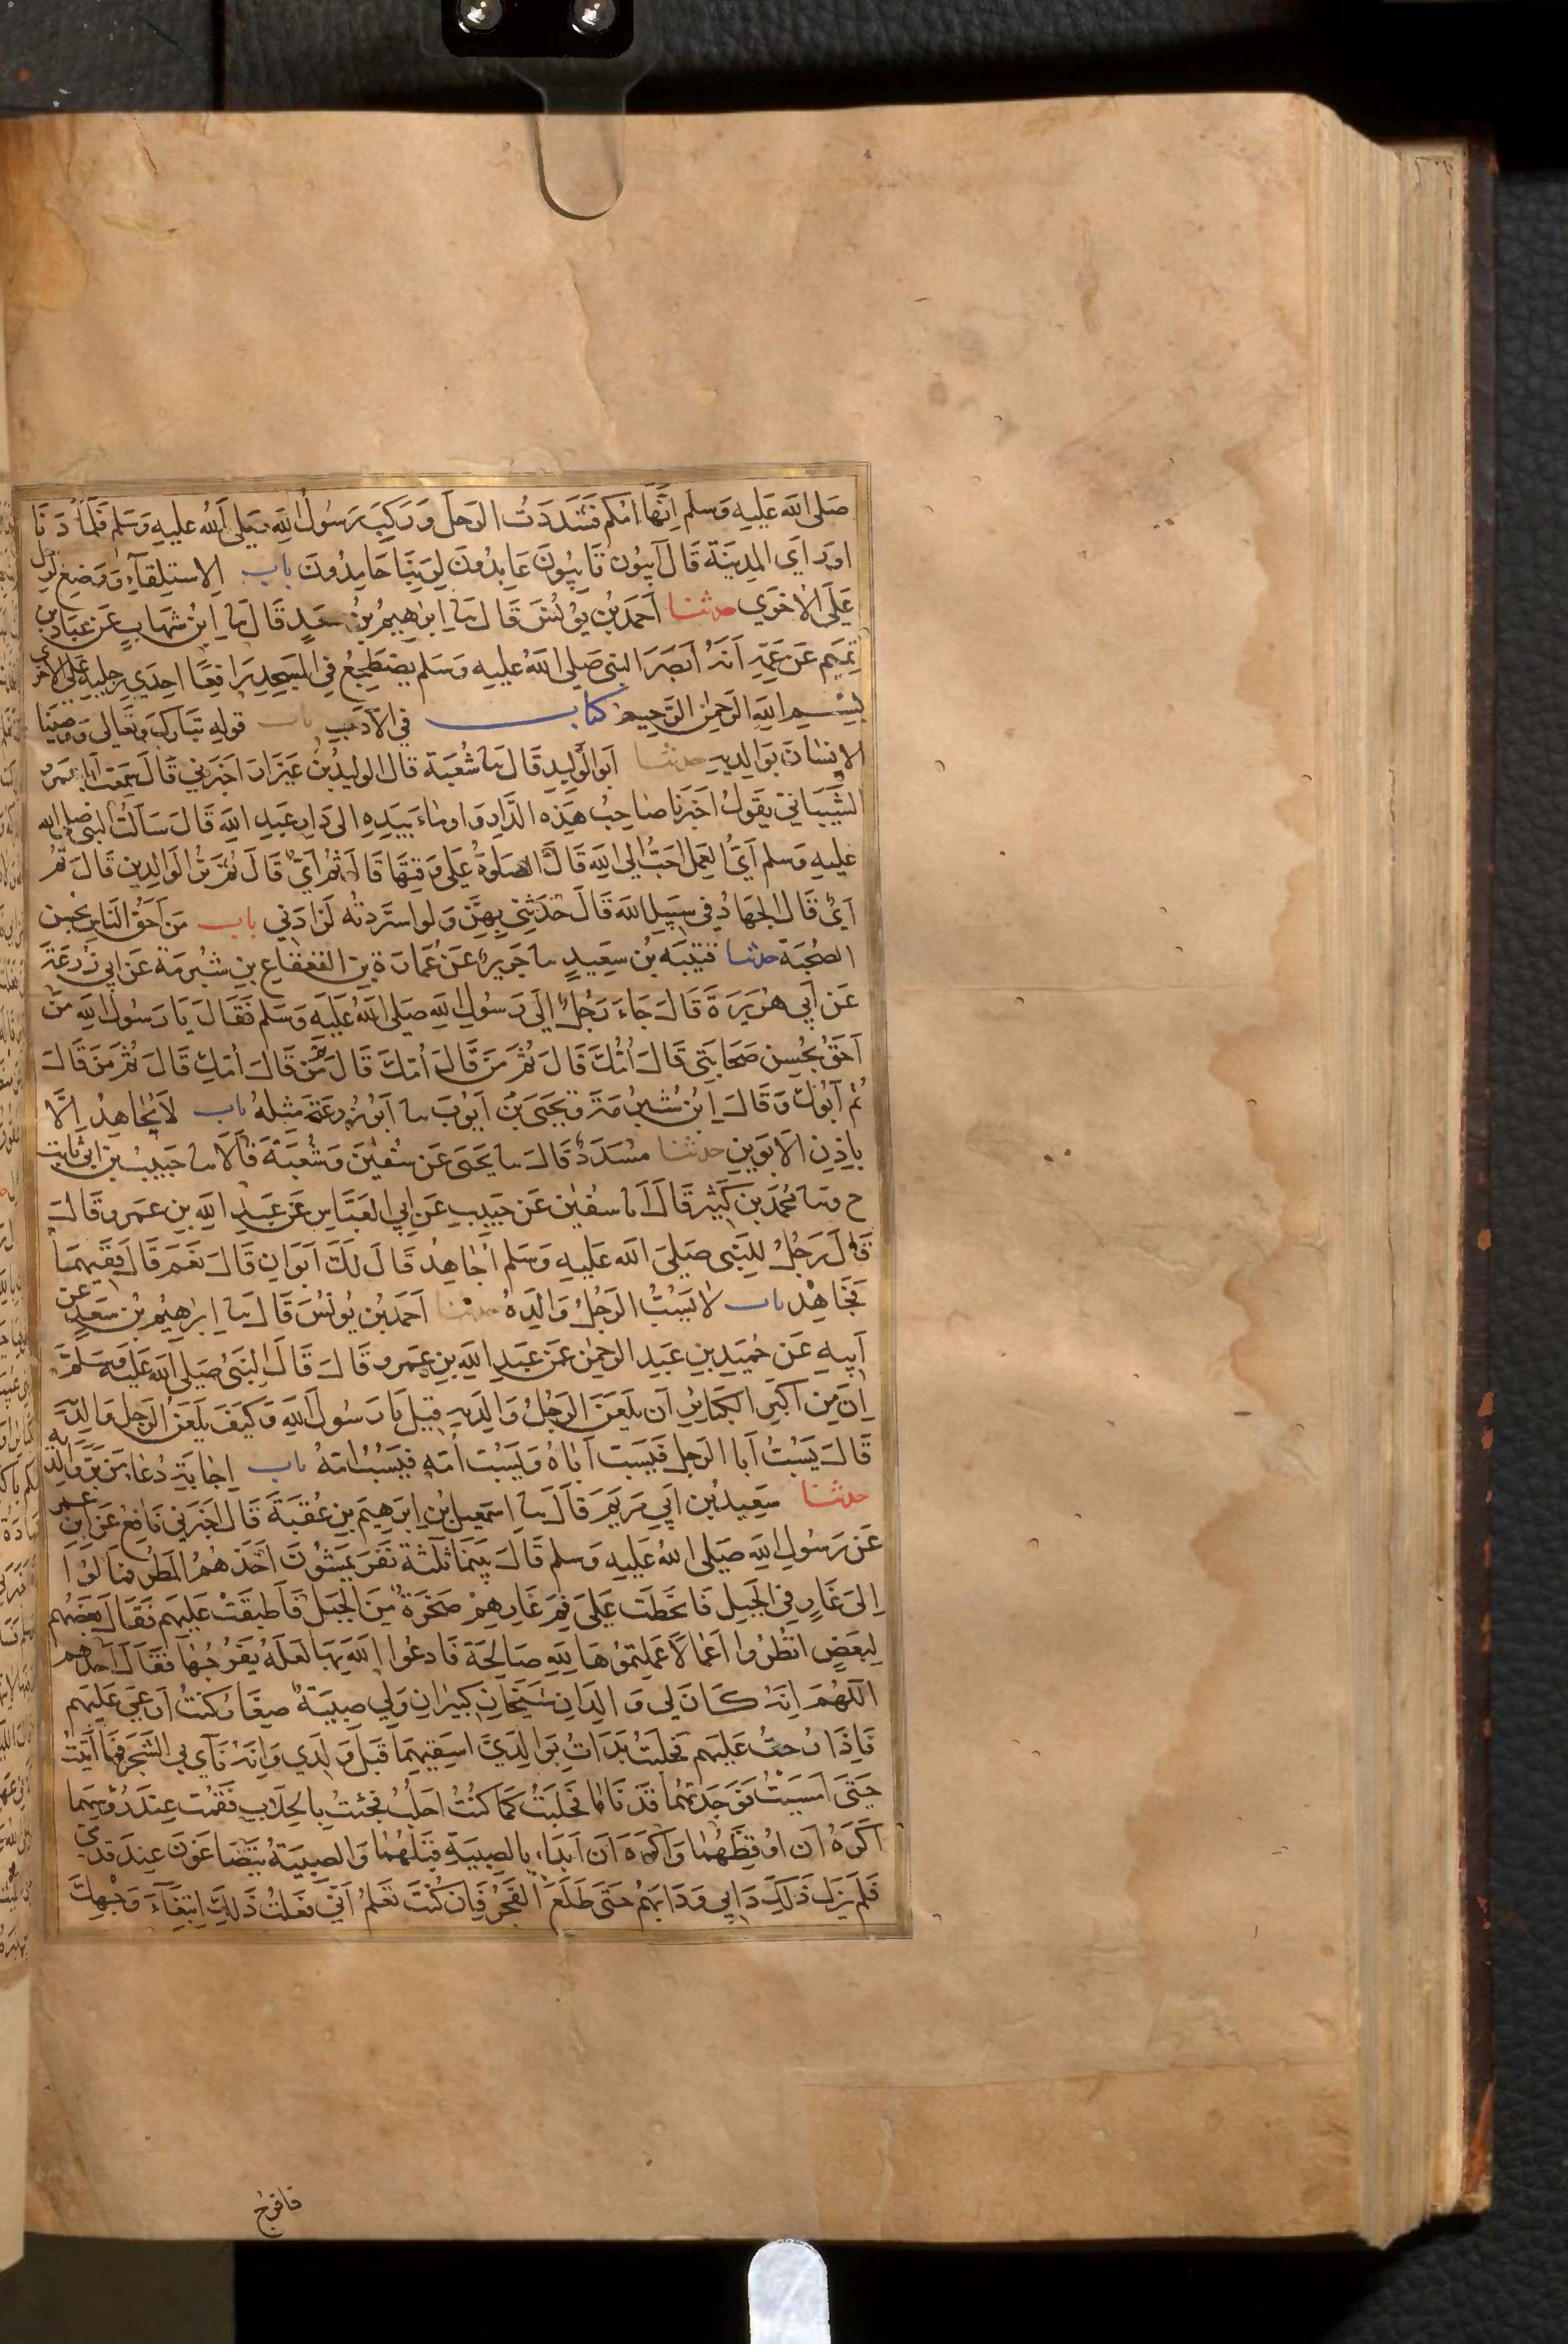 صَلى الله عَلَيهِ وَسلم اِنَّهَا امكم فَشَدَدتُ الرحلَ وَرَكِبَ رَسُولُ اللهِ صَلى اللهُ عليهِ وَسَلم فَلَمَّا دَنَا
اورَ اَي المدِينَة قَالَ آيبُون تَايبُونَ عَابدُونَ لِرَبِّنَا حَامِدُونَ باب الاستِلقَاءِ وَوَضِع الرجل
عَلَى الاخرَي حدثنا اَحمَد بن يُونُسَ قَالَ نا اِبرٰهِيمُ بنُ سَعدٍ قَالَ نا اِبن شهَابٍ عَن عَبّاد بنِ
تمِيم عَن عَمِّهِ اَنهُ اَبصَرَ النبي صَلى اللهُ عليهِ وَسَلم يضطَجِعُ فِي المسجِدِ رَافِعًا احِدَي رِجليهِ عَلَى الاخرَى
بِسْمِ اللهِ الرَحمٰنِ الرَّحِيم كتاب في الاَدَب باب قولِهِ تبَارَكَ وَتعَالى وَوَصينَا
الاِنسَانَ بوَالِديهِ حدثنا اَبو الوَلِيدِ قَالَ نا شُعبَة قَالَ الوليدُ بنُ عَيزَارَ اَخبَرَني قَالَ سَمِعتُ اَبا عَمرو
الشَّيبَاني يقولُ اَخبَرنَا صَاحِبُ هَذِهِ الدَّارِ وَاومَاءَ بيَدِهِ الى دَارِ عَبدِ اللهِ قَالَ سَاَلتُ النبي صلى الله
عَليهِ وَسلم اَيُّ العَمل احَبُّ الى اللهِ قَالَ الصَلوٰةُ عَلى وَقتِهَا قَالَ ثم اَيّ قَالَ ثم بِرُّ الوَالِدينِ قَالَ ثم
اَيّ قَالَ الجهَادُ في سَبِيلِ اللهِ قَالَ حَدَثنِي بِهِنّ وَلو استَزدتُه لَزَادَني باب مَن اَحَقُّ النَاسِ بحُسنِ
الصُحبَة حدثنا قتيبَة بنُ سَعِيدٍ نا جَرِيرٌ عَن عُمَارَة بنِ القعقاعِ بنِ شبرمَة عَن اَبي زُرعَة
عَن اَبي هُرَيرَة قَالَ جَاءَ رَجُلٌ اِلَى رَسُولِ اللهِ صَلى اللهُ عَليهِ وَسَلم فَقَالَ يَا رَسُولَ اللهِ مَن
اَحَقُّ بحُسنِ صَحَابَتِي قَالَ اُمُّكَ قَالَ ثمّ مَن قَالَ اُمّكَ قَالَ ثم مَن قَالَ اُمّكَ قَالَ ثمّ مَن قَالَ
ثم اَبُوكَ وَقَالَ اِبنُ شُبرُمَة وَيَحيَى بنُ اَيوبَ نا اَبُو زُرعَة مِثلهُ باب لَا يُجَاهِدُ اِلَّا
بِاِذنِ الاَبَوَينِ حدثنا مُسَدَّدٌ قَالَ نا يَحيَى عَن سُفيٰنَ وَشُعبَةَ قَالَا نا حَبِيب بن ابي ثابت
ح ونا محُمَد بن كثِير قَالَ انا سفيٰن عَن حَبِيبِ عَن اَبي العَبّاسِ عَن عَبدِ اللهِ بنِ عَمرو قَالَ
قَالَ رَجُلٌ لِلنَبي صَلى الله عَليهِ وَسَلم اُجَاهِدُ قَالَ لَكَ اَبَوَانِ قَالَ نَعَم قَالَ فَفِيهِمَا
فَجَاهِدْ باب لَا يَسُبُّ الرَجُلُ وَالِدَهُ حدثنا اَحمَد بن يُونُسَ قَالَ نا اِبرٰهِيمُ بن سَعدٍ عن
اَبِيهِ عَن حُمَيدِ بنِ عَبدِ الرحمٰنِ عَن عَبدِ اللهِ بنِ عَمرو قَالَ قَالَ النَبيُ صَلى اللهُ عَلَيهِ وَسَلم
اِنَّ مِن اَكبَرِ الكبَائرِ اَن يَلعَنَ الرَجُلُ وَالِدَيهِ قِيلَ يَا رَسُولَ اللهِ وَكَيفَ يَلعَنُ الرَجل وَالِدَيه
قَالَ يَسُبُّ اَبَا الرَجلِ فَيَسُب اَبَاهُ وَيَسُبّ اُمّه فَيَسُبّ امّهُ باب اِجَابَةِ دُعَاءِ مَن بَرَّ وَالِدَيه
حدثنا سَعِيد بن اَبي مَريَمَ قَالَ نا اِسمٰعيل بن اِبرٰهِيم بنِ عُقبَةَ قَالَ اَخبَرَني نَافِع عَن ابن عمر
عَن رَسُولِ اللهِ صَلى اللهُ عَليهِ وَسلم قَالَ بَينَمَا ثَلٰثَة نَفَر يَمشُونَ اَخَذَهُمُ المَطَرُ فَمَالُوا
اِلَى غَارٍ فِي الجَبلِ فَانحَطت عَلَى فَم غَارِهِمْ صَخرَةٌ مِنَ الجَبَلِ فَاَطبَقَتْ عَليهِم فَقَالَ بَعضُهُم
لِبَعضٍ انظُرُوا اَعمَالًا عَمِلتمُوهَا لِلهِ صَالِحَة فَادعُوا اللهَ بِهَا لعَلهُ يَفرُجُهَا فقَالَ اَحَدُهُم
اَللهُمَ اِنَهُ كَانَ لِي وَالِدَانِ شَيخَانِ كَبِيرَانِ وَلي صِبيَةٌ صِغَارٌ كُنتُ اَرعَى عَليهِم
فَاِذَا رُحتُ عَليهِم فحَلَبتُ بَدَاتُ بوَالِدَيَّ اَسقِيهِمَا قَبلَ وَلَدِي وَاِنهُ نَآى بي الشَجَر فَمَا اَتيتُ
حَتّى اَمسَيتُ فَوَجَدتهُمَا قَد نَامَا فحَلَبتُ كَمَا كنتُ اَحلُبُ فجئتُ بالحِلَابِ فَقُمت عِندَ رُؤُسِهِمَا
اَكرَهُ اَن اُوقِظَهُمَا وَاَكرَه اَن اَبدَاءَ بالصِبيَةِ قبلَهُمَا وَالصِبيَةُ يَتَضَاغَونَ عِندَ قَدَمَيّ
فَلَم يَزَل ذَلِكَ دَابِي وَدَابَهُم حَتّى طَلَعَ الفَجرُ فَاِن كُنتَ تَعلَمُ اَنّي فَعَلتُ ذَلِكَ ابتِغَآءَ وَجْهِكَ
فافرج